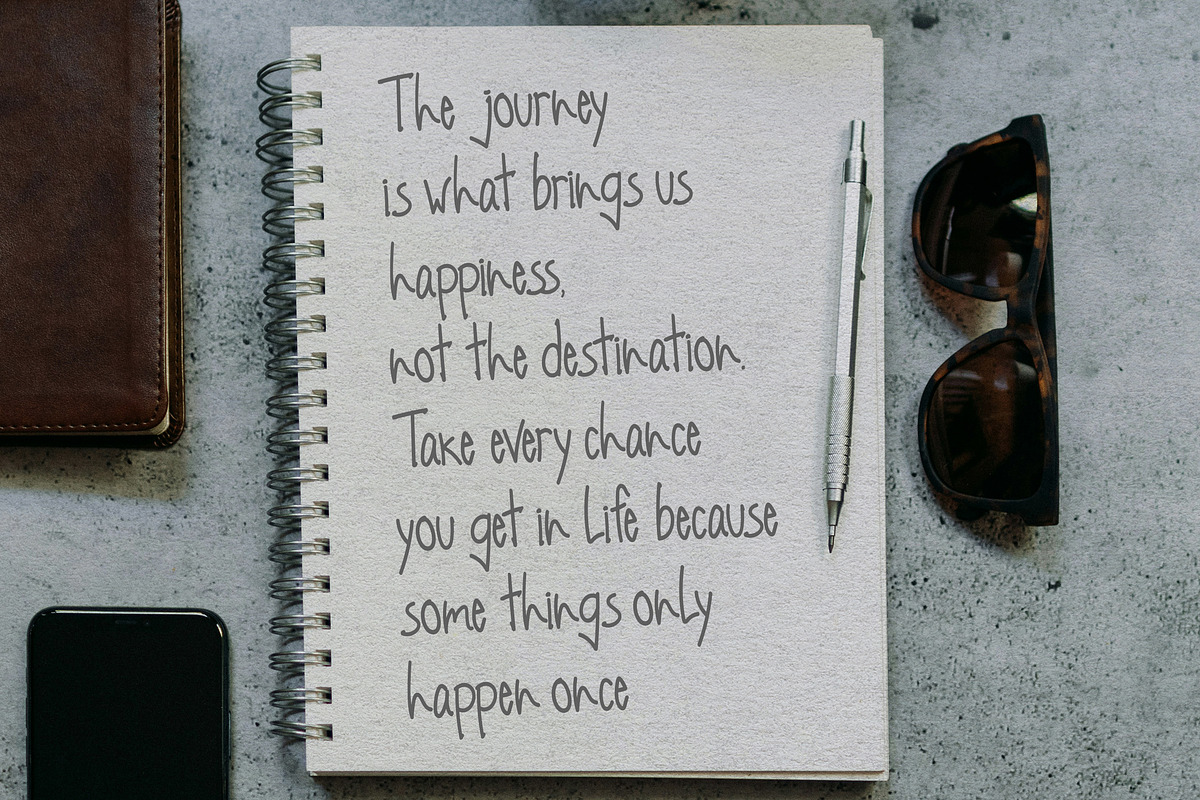 The journey
is what brings us
happiness,
not the destination.
Take every chance
you get in Life because
some things only
happen once